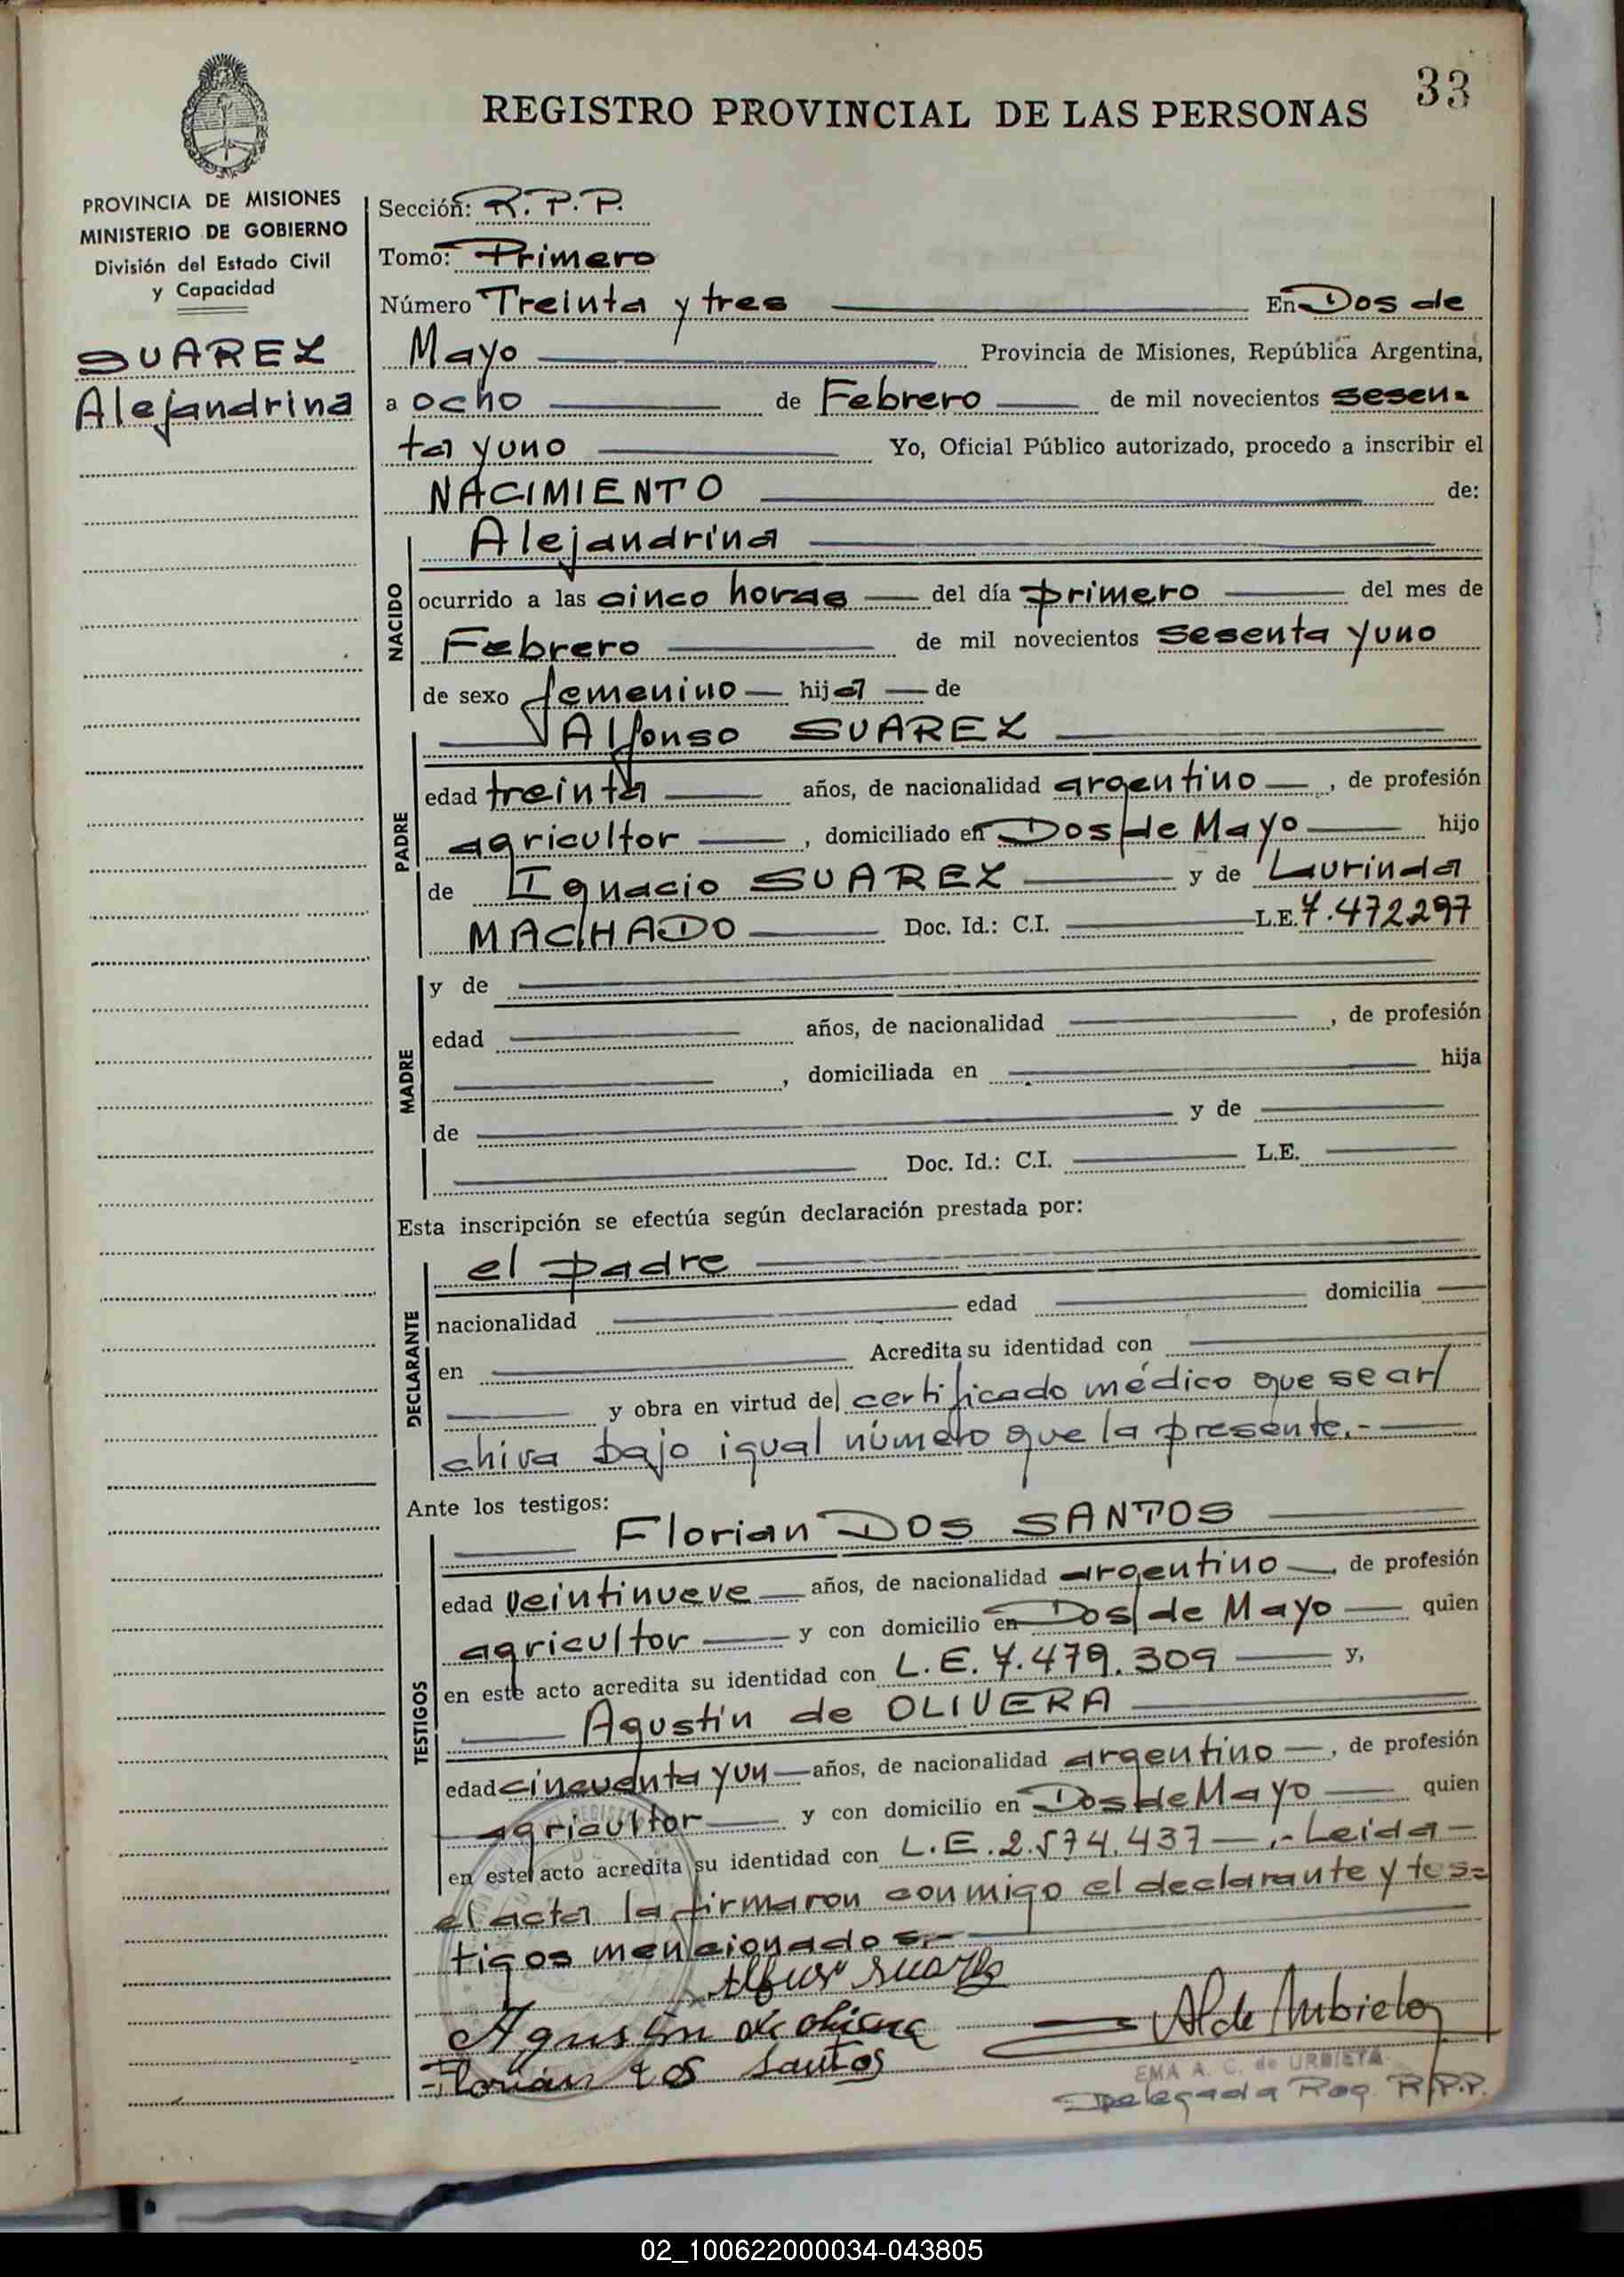 33
REGISTRO PROVINCIAL DE LAS PERSONAS
PROVINCIA DE MISIONES
MINISTERIO DE GOBIERNO
División del Estado Civil
y Capacidad
SUAREZ
Alejandrina
Sección: R. P. P.
Tomo: Primero
Número Treinta y tres En Dos de
Mayo Provincia de Misiones, República Argentina,
a ocho de Febrero de mil novecientos sesen=
ta y uno Yo, Oficial Público autorizado, procedo a inscribir el
NACIMIENTO de:
NACIDO
Alejandrina
ocurrido a las cinco horas del día primero del mes de
Febrero de mil novecientos sesenta y uno
de sexo femenino hija de
PADRE
Alfonso SUAREZ
edad treinta años, de nacionalidad argentino, de profesión
agricultor, domiciliado en Dos de Mayo hijo
de Ignacio SUAREZ y de Laurinda
MACHADO Doc. Id.: C.I. L.E. 7.472297
MADRE
y de
edad años, de nacionalidad , de profesión
, domiciliada en hija
de y de
Doc. Id.: C.I. L.E.
Esta inscripción se efectúa según declaración prestada por:
DECLARANTE
el padre
nacionalidad edad domicilia
en Acredita su identidad con
y obra en virtud del certificado médico que se ar/
chiva bajo igual número que la presente.-
Ante los testigos:
TESTIGOS
Florian DOS SANTOS
edad veintinueve años, de nacionalidad argentino, de profesión
agricultor y con domicilio en Dos de Mayo quien
en este acto acredita su identidad con L.E. 7.479.309 y,
Agustín de OLIVERA
edad cincuenta y un años, de nacionalidad argentino, de profesión
agricultor y con domicilio en Dos de Mayo quien
en este acto acredita su identidad con L.E. 2.574.437 .- Leida
el acta la firmaron conmigo el declarante y tes=
tigos mencionados.-
Suarez
Agustin de
Florian dos Santos
EMA A. C. de URBIETA
Delegada Reg. R.P.P.
02_100622000034-043805